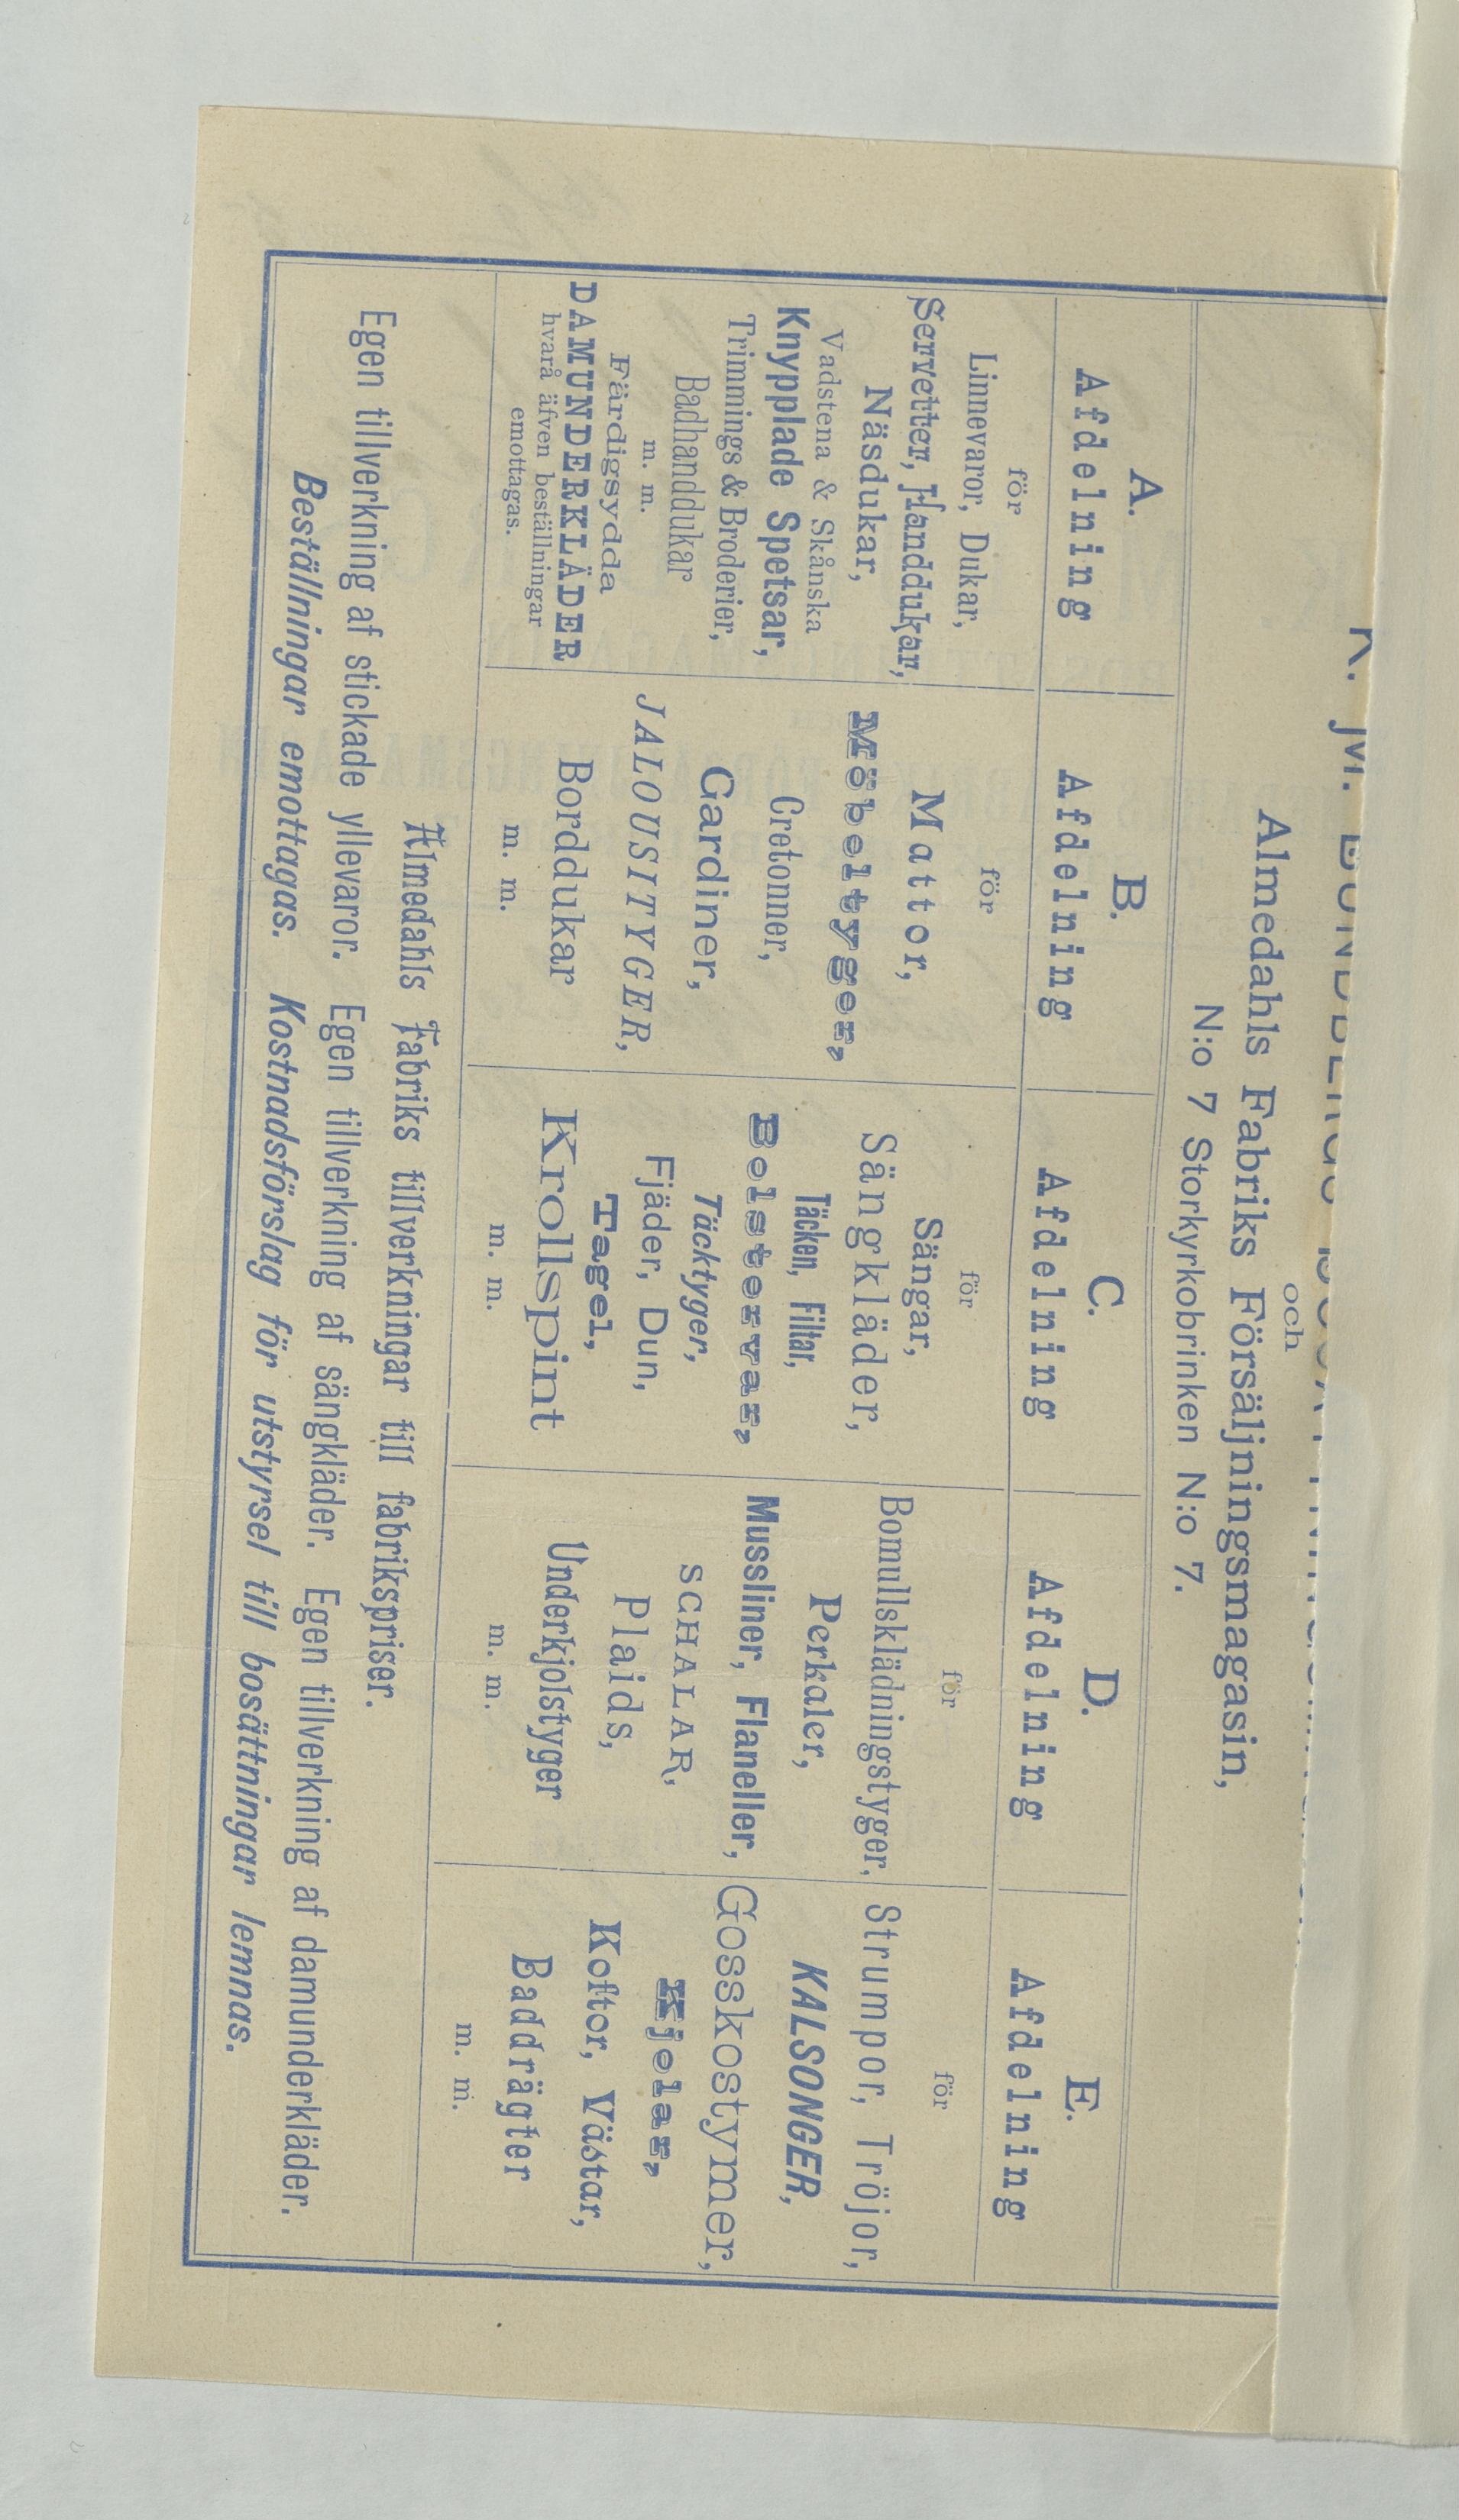 K. M.
och
Almedahls Fabriks Försäljningsmagasin,
N:o 7 Storkyrkobrinken N:o 7.
A.
Afdelning
för
Linnevaror, Dukar,
Servetter, Handdukar,
Näsdukar,
Vadstena & Skånska
Knypplade Spetsar,
Trimmings & Broderier,
Badhanddukar
m. m.
Färdigsydda
DAMUNDERKLÄDER
hvarå äfven beställningar
emottagas.
B.
Afdelning
för
Mattor,
Möbeltyger,
Cretonner,
Gardiner,
JALOUSITYGER,
Borddukar
m. m.
C.
Afdelning
för
Sängar,
Sängkläder,
Täcken, Filtar,
Bolstervar,
Täcktyger,
Fjäder, Dun,
Tagel,
Krollspint
m. m.
D.
Afdelning
för
Bomullsklädningstyger,
Perkaler,
Mussliner, Flaneller,
SCHALAR,
Plaids,
Underkjolstyger
m. m.
E.
Afdelning
för
Strumpor, Tröjor,
KALSONGER,
Gosskostymer,
Kjolar,
Koftor, Västar,
Baddrägter
m. m.
Almedahls Fabriks tillverkningar till fabrikspriser.
Egen tillverkning af stickade yllevaror. Egen tillverkning af sängkläder. Egen tillverkning af damunderkläder.
Beställningar emottagas. Kostnadsförslag för utstyrsel till bosättningar lemnas.